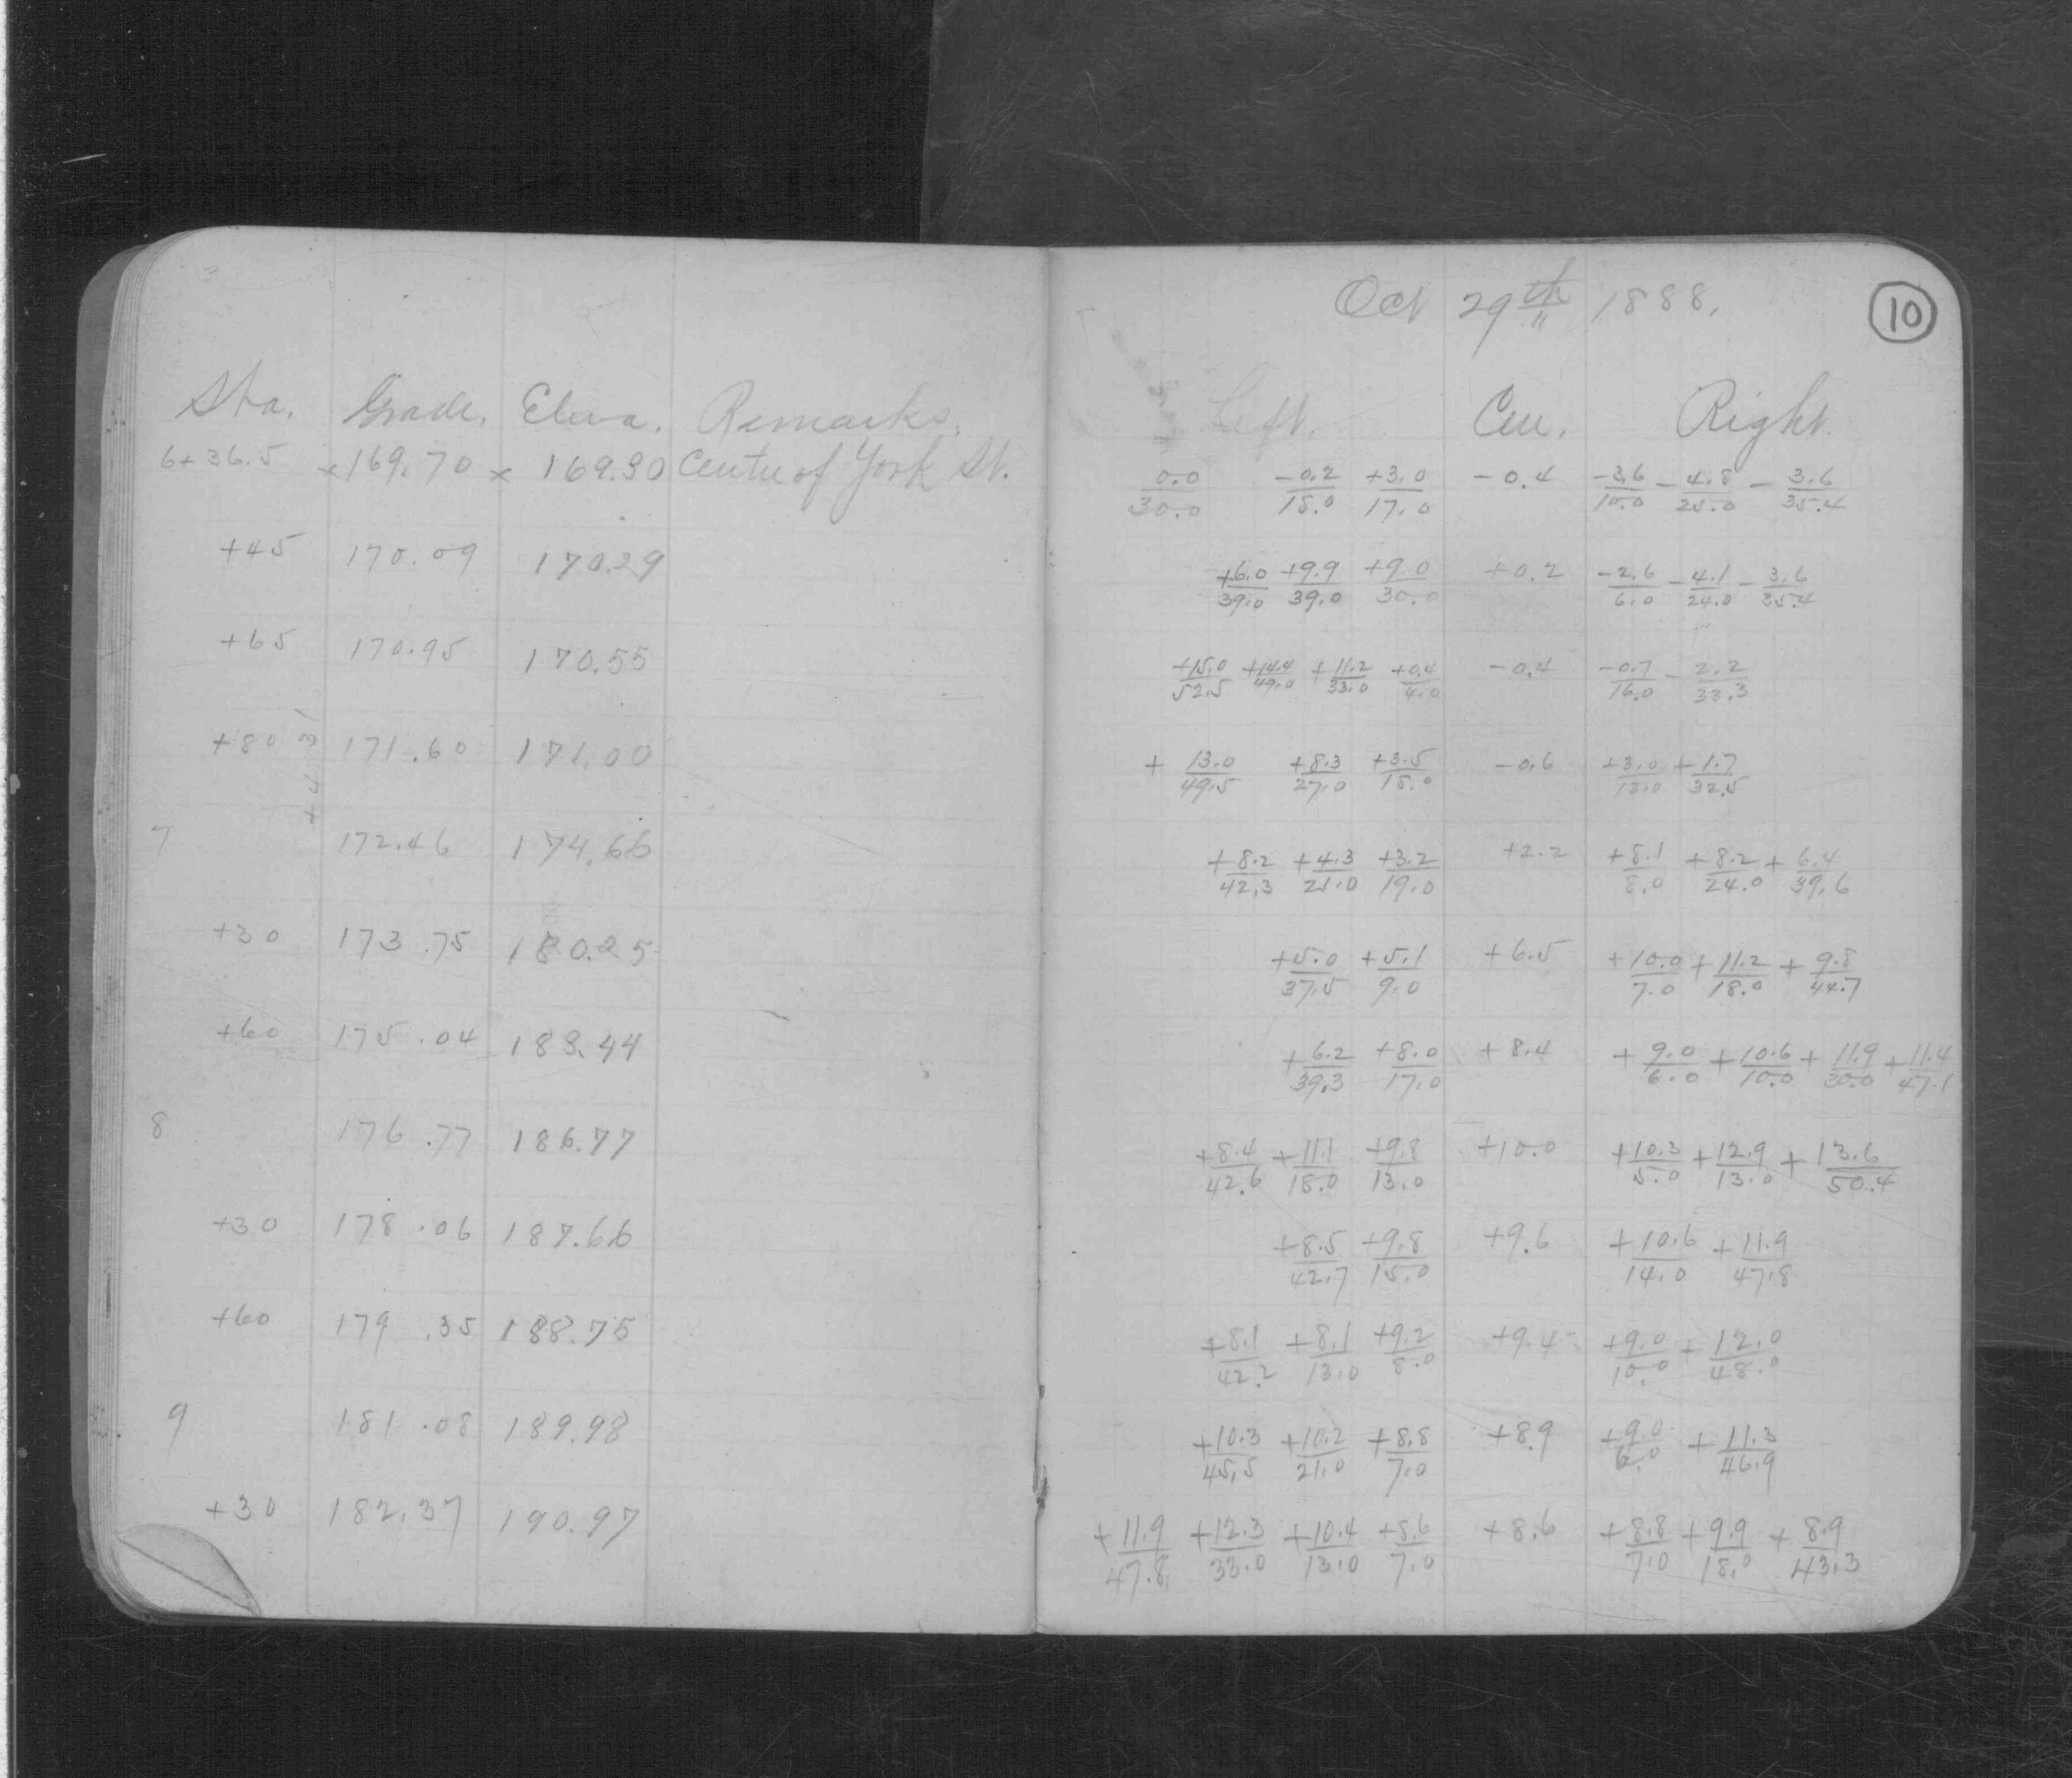 Oct 29th 1888.
10
Sta. Grade. Eleva. Remarks. Left. Cen. Right.
6+36.5 ×169.70 × 169.30 Centre of York St. 0.0/30.0 -0.2/18.0 +3.0/17.0 -0.4 -3.6/10.0 -4.8/25.0 -3.6/35.4
+45 170.09 170.29 +6.0/39.0 +9.9/39.0 +9.0/30.0 +0.2 -2.6/6.0 -4.1/24.0 -3.6/35.4
+65 170.95 170.55 +15.0/52.5 +14.4/49.0 +11.2/33.0 +0.4/4.0 -0.4 -0.7/16.0 -2.2/33.3
+80 171.60 171.00 +13.0/49.5 +8.3/27.0 +3.5/15.0 -0.6 +3.0/13.0 +1.7/32.5
7 172.46 174.66 +8.2/42.3 +4.3/21.0 +3.2/19.0 +2.2 +8.1/8.0 +8.2/24.0 +6.4/39.6
+30 173.75 180.25 +5.0/37.5 +5.1/9.0 +6.5 +10.0/7.0 +11.2/18.0 +9.8/44.7
+60 175.04 183.44 +6.2/39.3 +8.0/17.0 +8.4 +9.0/6.0 +10.6/10.0 +11.9/30.0 +11.4/47.1
8 176.77 186.77 +8.4/42.6 +11.1/18.0 +9.8/13.0 +10.0 +10.3/5.0 +12.9/13.0 +13.6/50.4
+30 178.06 187.66 +8.5/42.7 +9.8/15.0 +9.6 +10.6/14.0 +11.9/47.8
+60 179.35 188.75 +8.1/42.2 +8.1/13.0 +9.2/8.0 +9.4 +9.0/10.0 +12.0/48.0
9 181.08 189.98 +10.3/45.5 +10.2/21.0 +8.8/7.0 +8.9 +9.0/6.0 +11.3/46.9
+30 182.37 190.97 +11.9/47.8 +12.3/33.0 +10.4/13.0 +8.6/7.0 +8.6 +8.8/7.0 +9.9/18.0 +8.9/43.3